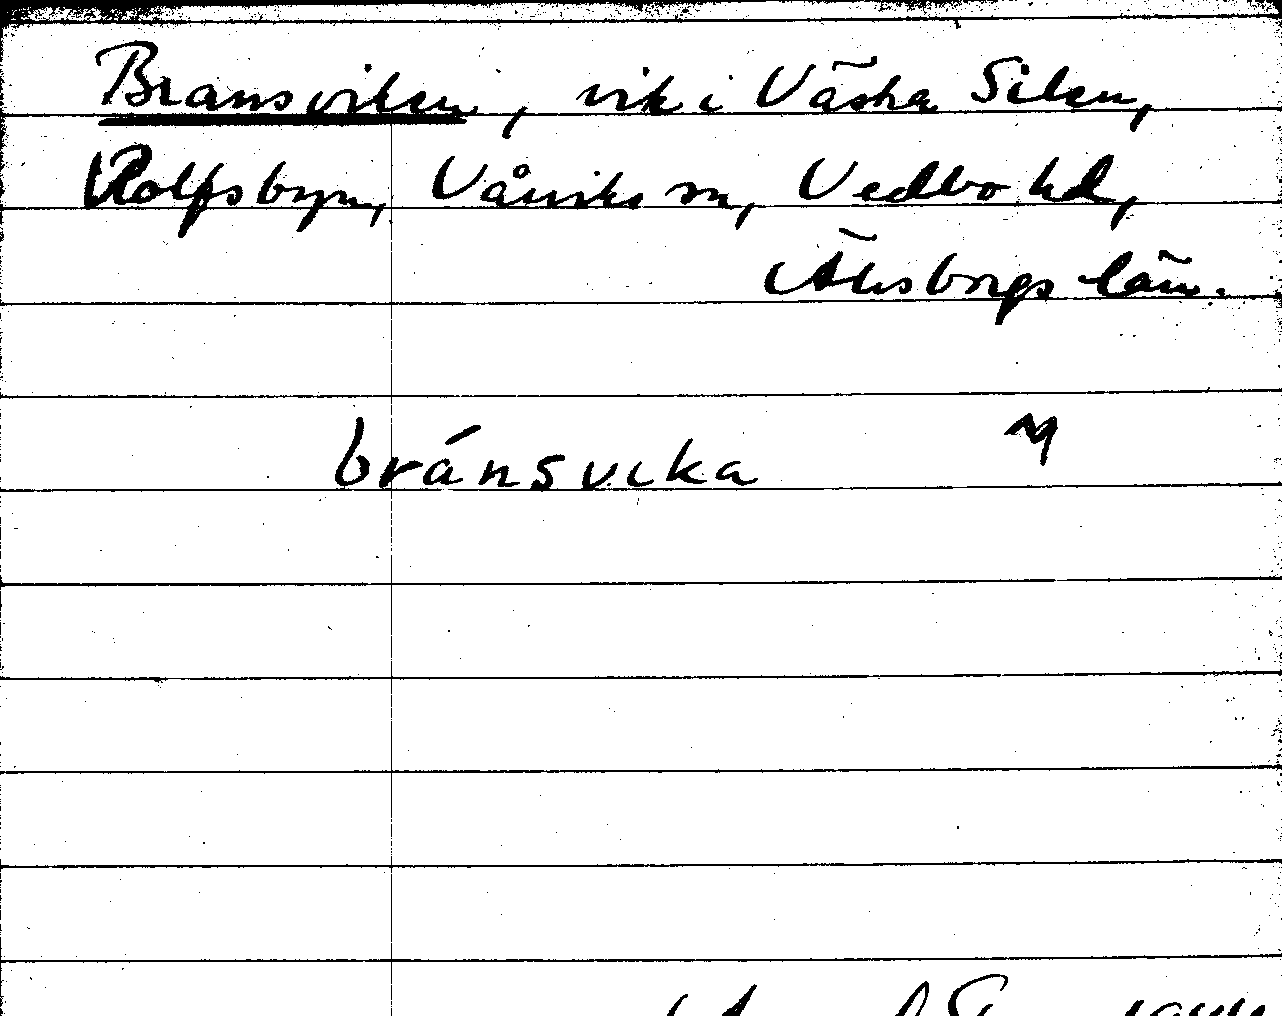 Bransviken, vik i Västra Silen,
Rolfsbyn, Vårviks sn, Vedbo hd,
Älvsborgs län.
bránsvika